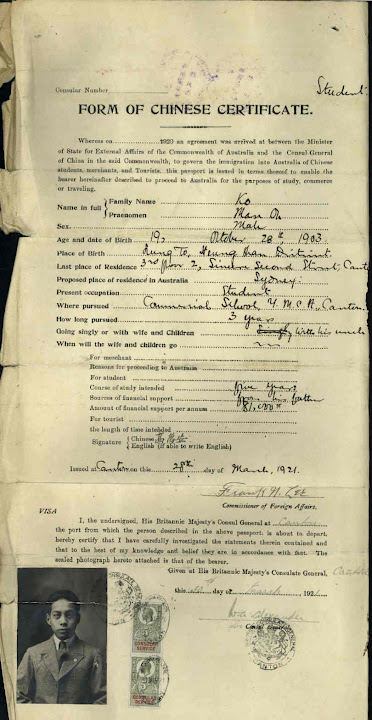 Student
Consular Number
FORM OF CHINESE CERTIFICATE.
Whereas on 1920 an agreement was arrived at between the Minister
of State for External Affairs of the Commonwealth of Australia and the Consul-General
of China in the said Commonwealth, to govern the immigration into Australia of Chinese
students, merchants, and Tourists, this passport is issued in terms thereof to enable the
bearer hereinafter described to proceed to Australia for the purposes of study, commerce
or traveling.
Name in full { Family Name Ko
Praenomen Man On
Sex Male
Age and date of Birth 19, October 28th, 1903
Place of Birth Kung To, Heung Shan District
Last place of Residence 3rd floor 2, Second Street, Canton
Proposed place of residence in Australia Sydney
Present occupation Student
Where pursued Commercial School, Y.M.C.A., Canton
How long pursued 3 years
Going singly or with wife and Children Singly, with his uncle
When will the wife and children go
For merchant
Reasons for proceeding to Australia
For student
Course of study intended five years
Sources of financial support from his father
Amount of financial support per annum $1,000
For tourist
the length of time intended
Signature { Chinese
English (if able to write English)
Issued at Canton on this 28th day of March, 1921.
Frank W. Lee
Commissioner of Foreign Affairs.
VISA
I, the undersigned, His Britannic Majesty's Consul General at Canton
the port from which the person described in the above passport is about to depart,
hereby certify that I have carefully investigated the statements therein contained and
that to the best of my knowledge and belief they are in accordance with that. The
sealed photograph hereto attached is that of the bearer.
Given at His Britannic Majesty's Consulate General, Canton
this day of March 1921
Consul General
CONSULAR
SERVICE
CONSULAR
SERVICE
CANTON